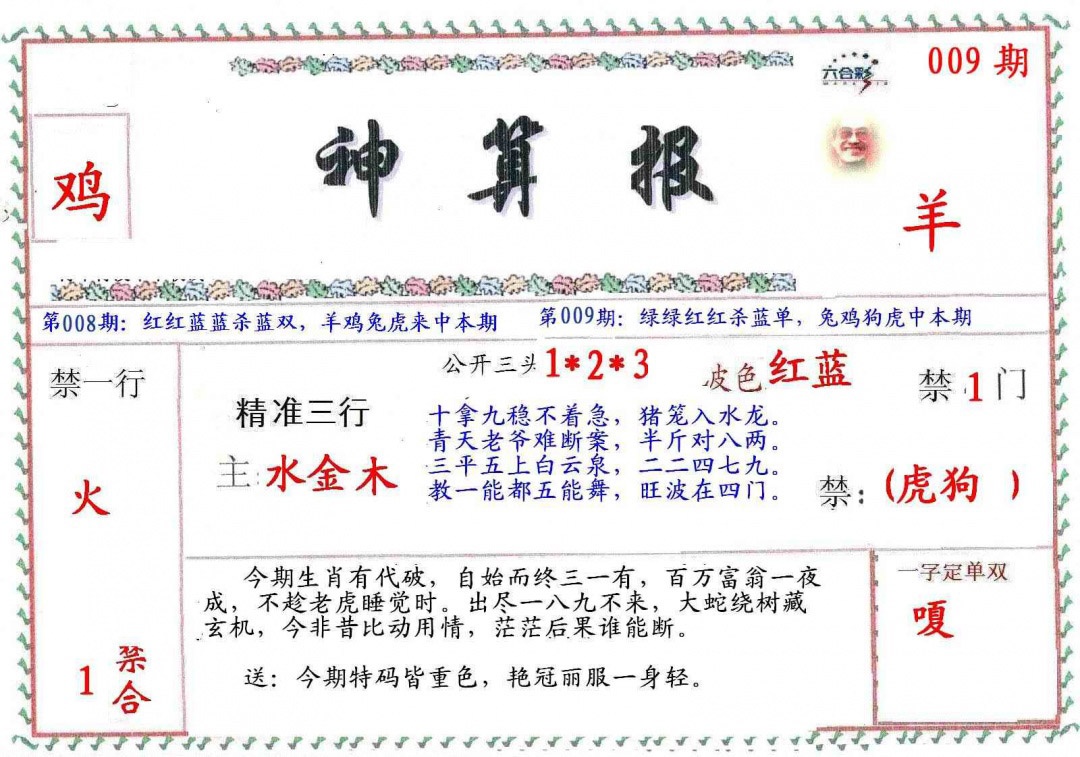 009 期
六合彩
神算报
鸡
羊
第008期：红红蓝蓝杀蓝双，羊鸡兔虎来中本期
第009期：绿绿红红杀蓝单，兔鸡狗虎中本期
禁一行
火
1 禁合
公开三头 1*2*3
波色 红蓝
禁 1 门
精准三行
主：水金木
十拿九稳不着急，猪笼入水龙。
青天老爷难断案，半斤对八两。
三平五上白云泉，二二四七九。
教一能都五能舞，旺波在四门。
禁：(虎狗 )
今期生肖有代破，自始而终三一有，百万富翁一夜
成，不趁老虎睡觉时。出尽一八九不来，大蛇绕树藏
玄机，今非昔比动用情，茫茫后果谁能断。
送：今期特码皆重色，艳冠丽服一身轻。
一字定单双
嗄